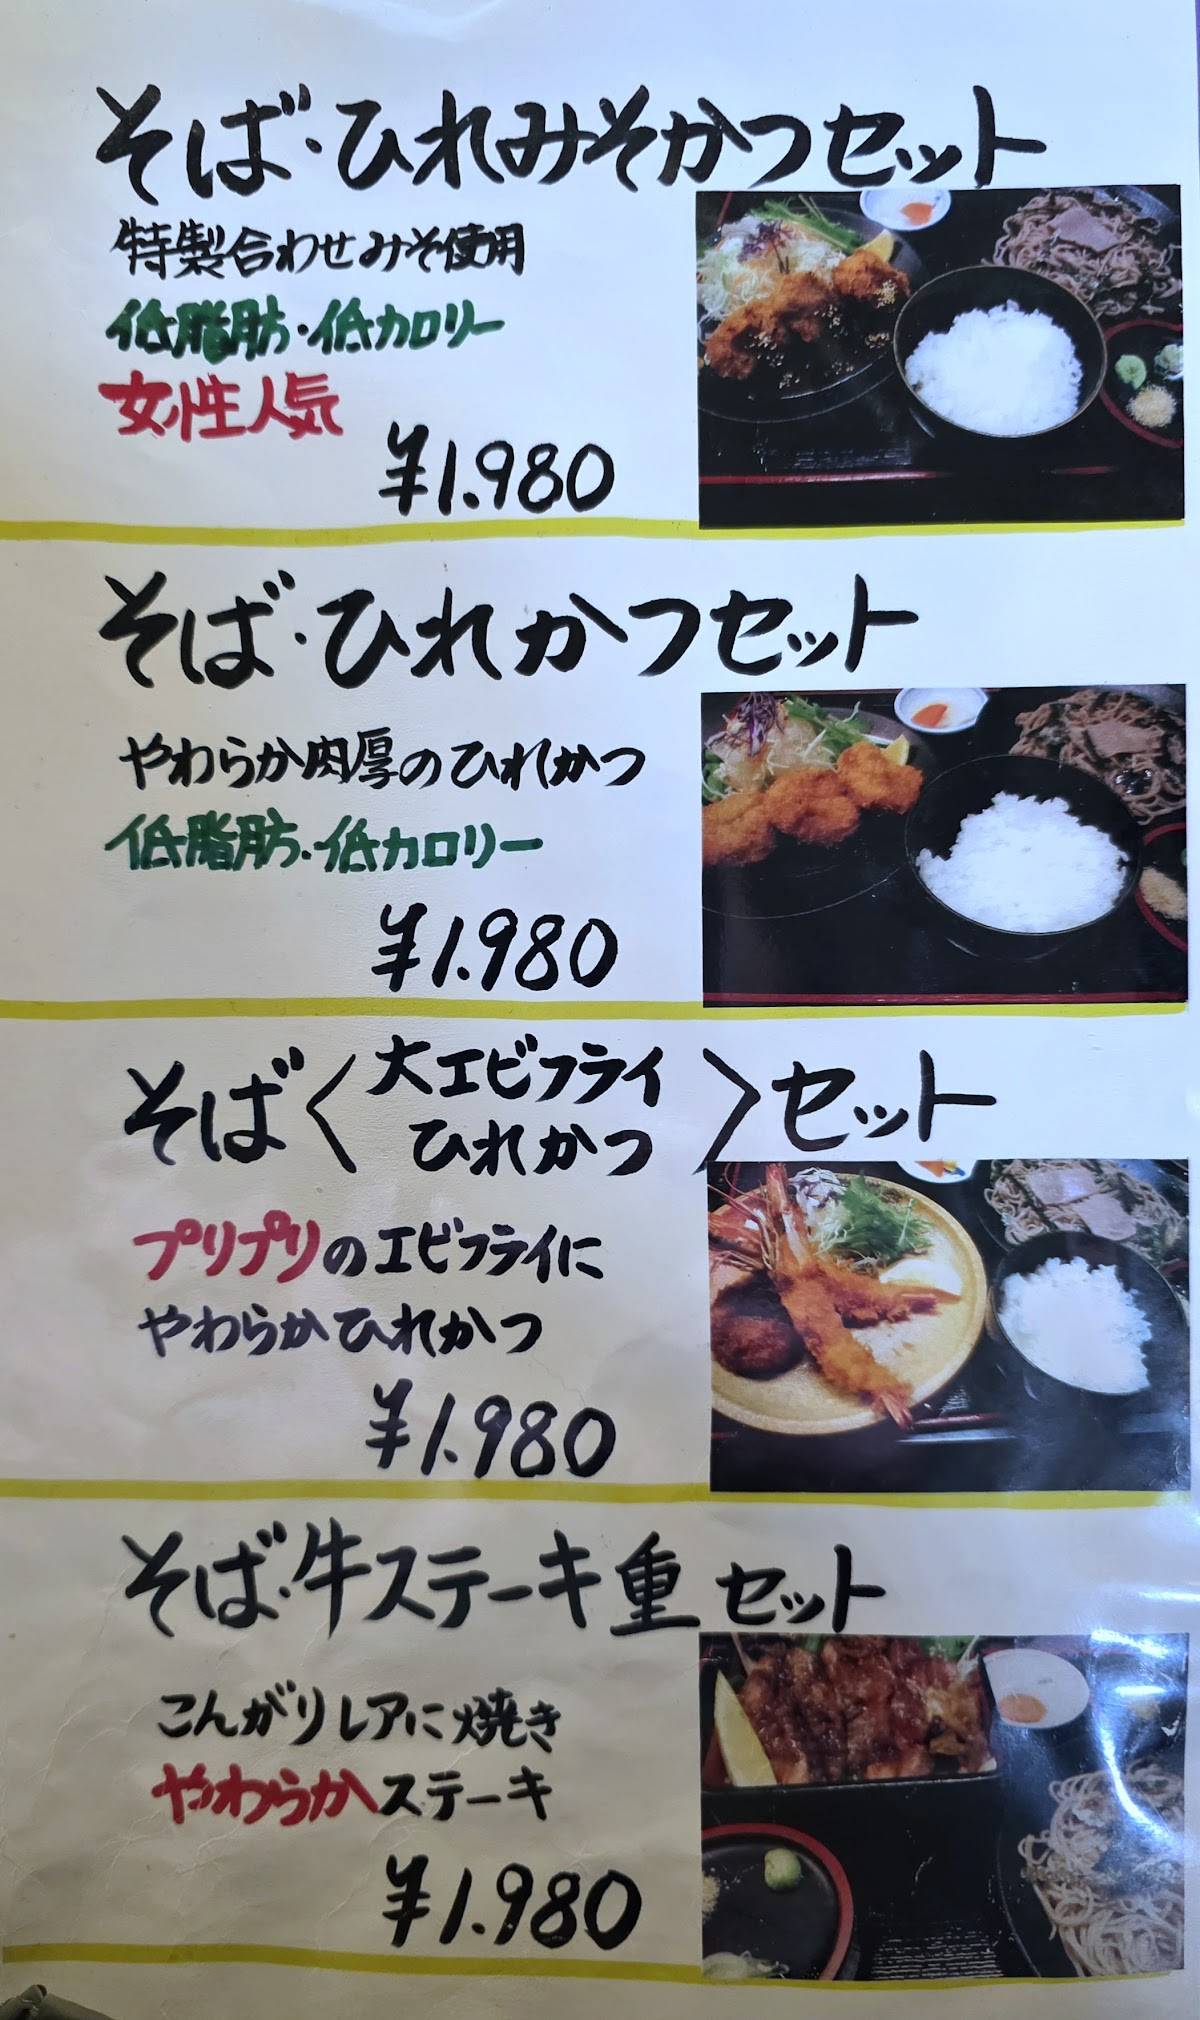 そば・ひれみそかつセット
特製合わせみそ使用
低脂肪・低カロリー
女性人気
¥1.980
そば・ひれかつセット
やわらか肉厚のひれかつ
低脂肪・低カロリー
¥1.980
そば〈大エビフライ
ひれかつ〉セット
プリプリのエビフライに
やわらかひれかつ
¥1.980
そば・牛ステーキ重セット
こんがりレアに焼き
やわらかステーキ
¥1.980